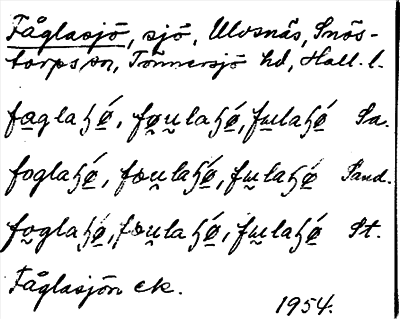 Fåglasjö, sjö, Ulvsnäs, Snös-
torps sn, Tönnersjö hd, Hall. l.
fag̲laɧǿ, fo̲u̯laɧǿ, fu̲laɧǿ Sa.
foglaɧǿ, fou̯laɧǿ, fu̲laɧǿ Sand.
fo̲glaɧǿ, fou̯laɧǿ, fu̲laɧǿ St.
Fåglasjön ek.
1954.